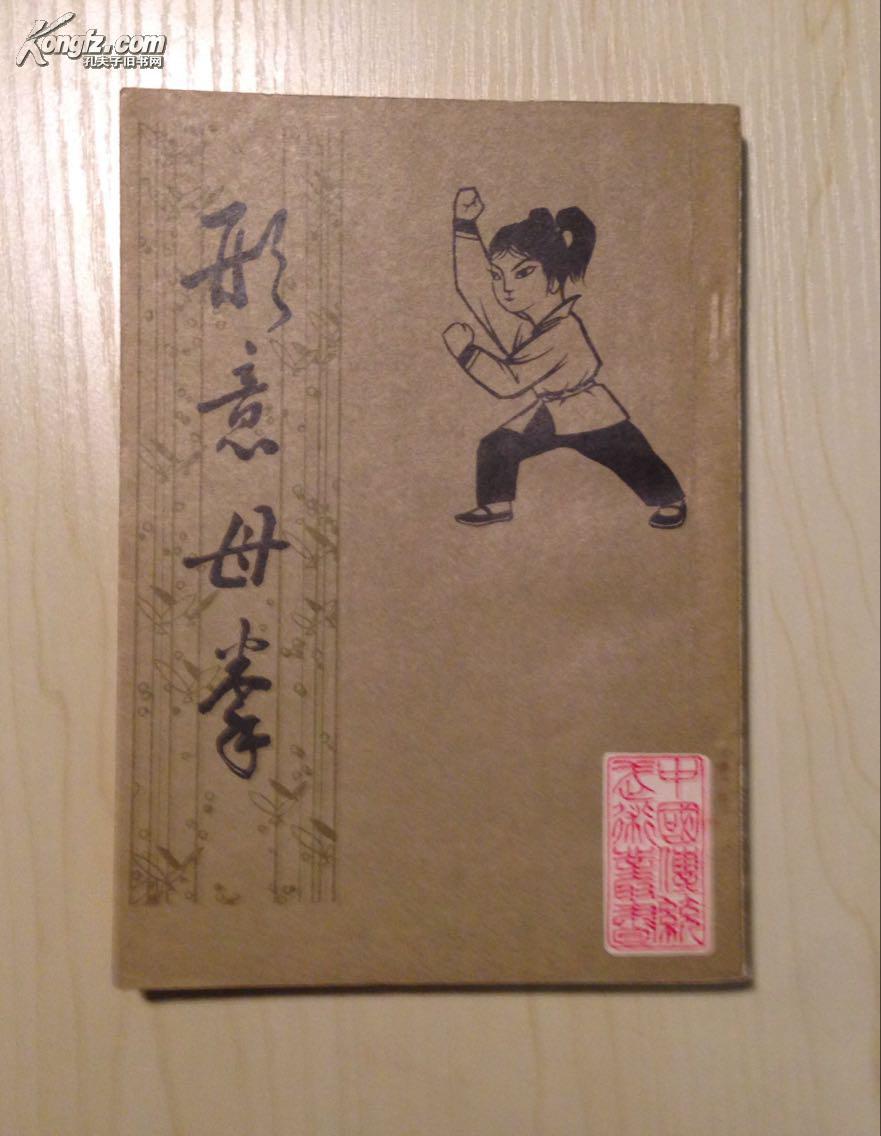 Kongfz.com
孔夫子旧书网
形意母拳
中國傳統
武術叢書